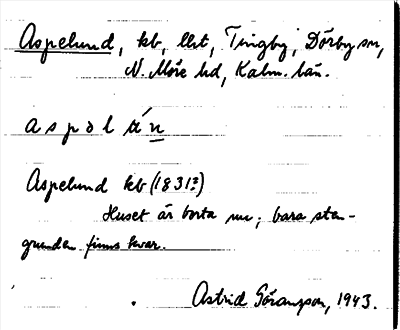 Aspelund, kb, lht, Tingby, Dörby sn,
N. Möre hd, Kalm. län.
aspəlún
Aspelund kb (1831?)
Huset är borta nu; bara sten-
grunden finns kvar.
Astrid Göransson, 1943.